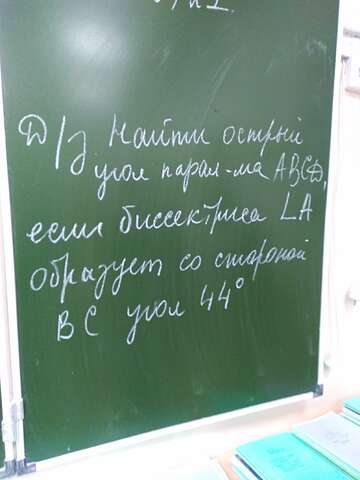 Д/з. Найти острый
угол парал-ма ABCD,
если биссектриса ∠A
образует со стороной
BC угол 44°